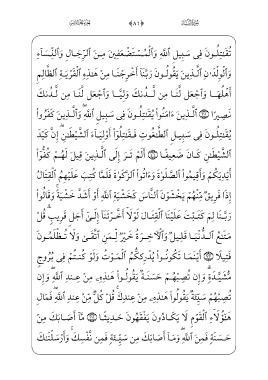 تُقَٰتِلُونَ فِى سَبِيلِ ٱللَّهِ وَٱلْمُسْتَضْعَفِينَ مِنَ ٱلرِّجَالِ وَٱلنِّسَآءِ
وَٱلْوِلْدَٰنِ ٱلَّذِينَ يَقُولُونَ رَبَّنَآ أَخْرِجْنَا مِنْ هَٰذِهِ ٱلْقَرْيَةِ ٱلظَّالِمِ
أَهْلُهَا وَٱجْعَل لَّنَا مِن لَّدُنكَ وَلِيًّا وَٱجْعَل لَّنَا مِن لَّدُنكَ
نَصِيرًا ۝ ٱلَّذِينَ ءَامَنُوا۟ يُقَٰتِلُونَ فِى سَبِيلِ ٱللَّهِ وَٱلَّذِينَ كَفَرُوا۟
يُقَٰتِلُونَ فِى سَبِيلِ ٱلطَّٰغُوتِ فَقَٰتِلُوٓا۟ أَوْلِيَآءَ ٱلشَّيْطَٰنِ إِنَّ كَيْدَ
ٱلشَّيْطَٰنِ كَانَ ضَعِيفًا ۝ أَلَمْ تَرَ إِلَى ٱلَّذِينَ قِيلَ لَهُمْ كُفُّوٓا۟
أَيْدِيَكُمْ وَأَقِيمُوا۟ ٱلصَّلَوٰةَ وَءَاتُوا۟ ٱلزَّكَوٰةَ فَلَمَّا كُتِبَ عَلَيْهِمُ ٱلْقِتَالُ
إِذَا فَرِيقٌ مِّنْهُمْ يَخْشَوْنَ ٱلنَّاسَ كَخَشْيَةِ ٱللَّهِ أَوْ أَشَدَّ خَشْيَةً وَقَالُوا۟
رَبَّنَا لِمَ كَتَبْتَ عَلَيْنَا ٱلْقِتَالَ لَوْلَآ أَخَّرْتَنَآ إِلَىٰٓ أَجَلٍ قَرِيبٍ قُلْ
مَتَٰعُ ٱلدُّنْيَا قَلِيلٌ وَٱلْءَاخِرَةُ خَيْرٌ لِّمَنِ ٱتَّقَىٰ وَلَا تُظْلَمُونَ
فَتِيلًا ۝ أَيْنَمَا تَكُونُوا۟ يُدْرِككُّمُ ٱلْمَوْتُ وَلَوْ كُنتُمْ فِى بُرُوجٍ
مُّشَيَّدَةٍ وَإِن تُصِبْهُمْ حَسَنَةٌ يَقُولُوا۟ هَٰذِهِۦ مِنْ عِندِ ٱللَّهِ وَإِن
تُصِبْهُمْ سَيِّئَةٌ يَقُولُوا۟ هَٰذِهِۦ مِنْ عِندِكَ قُلْ كُلٌّ مِّنْ عِندِ ٱللَّهِ فَمَالِ
هَٰٓؤُلَآءِ ٱلْقَوْمِ لَا يَكَادُونَ يَفْقَهُونَ حَدِيثًا ۝ مَّآ أَصَابَكَ مِنْ
حَسَنَةٍ فَمِنَ ٱللَّهِ وَمَآ أَصَابَكَ مِن سَيِّئَةٍ فَمِن نَّفْسِكَ وَأَرْسَلْنَٰكَ